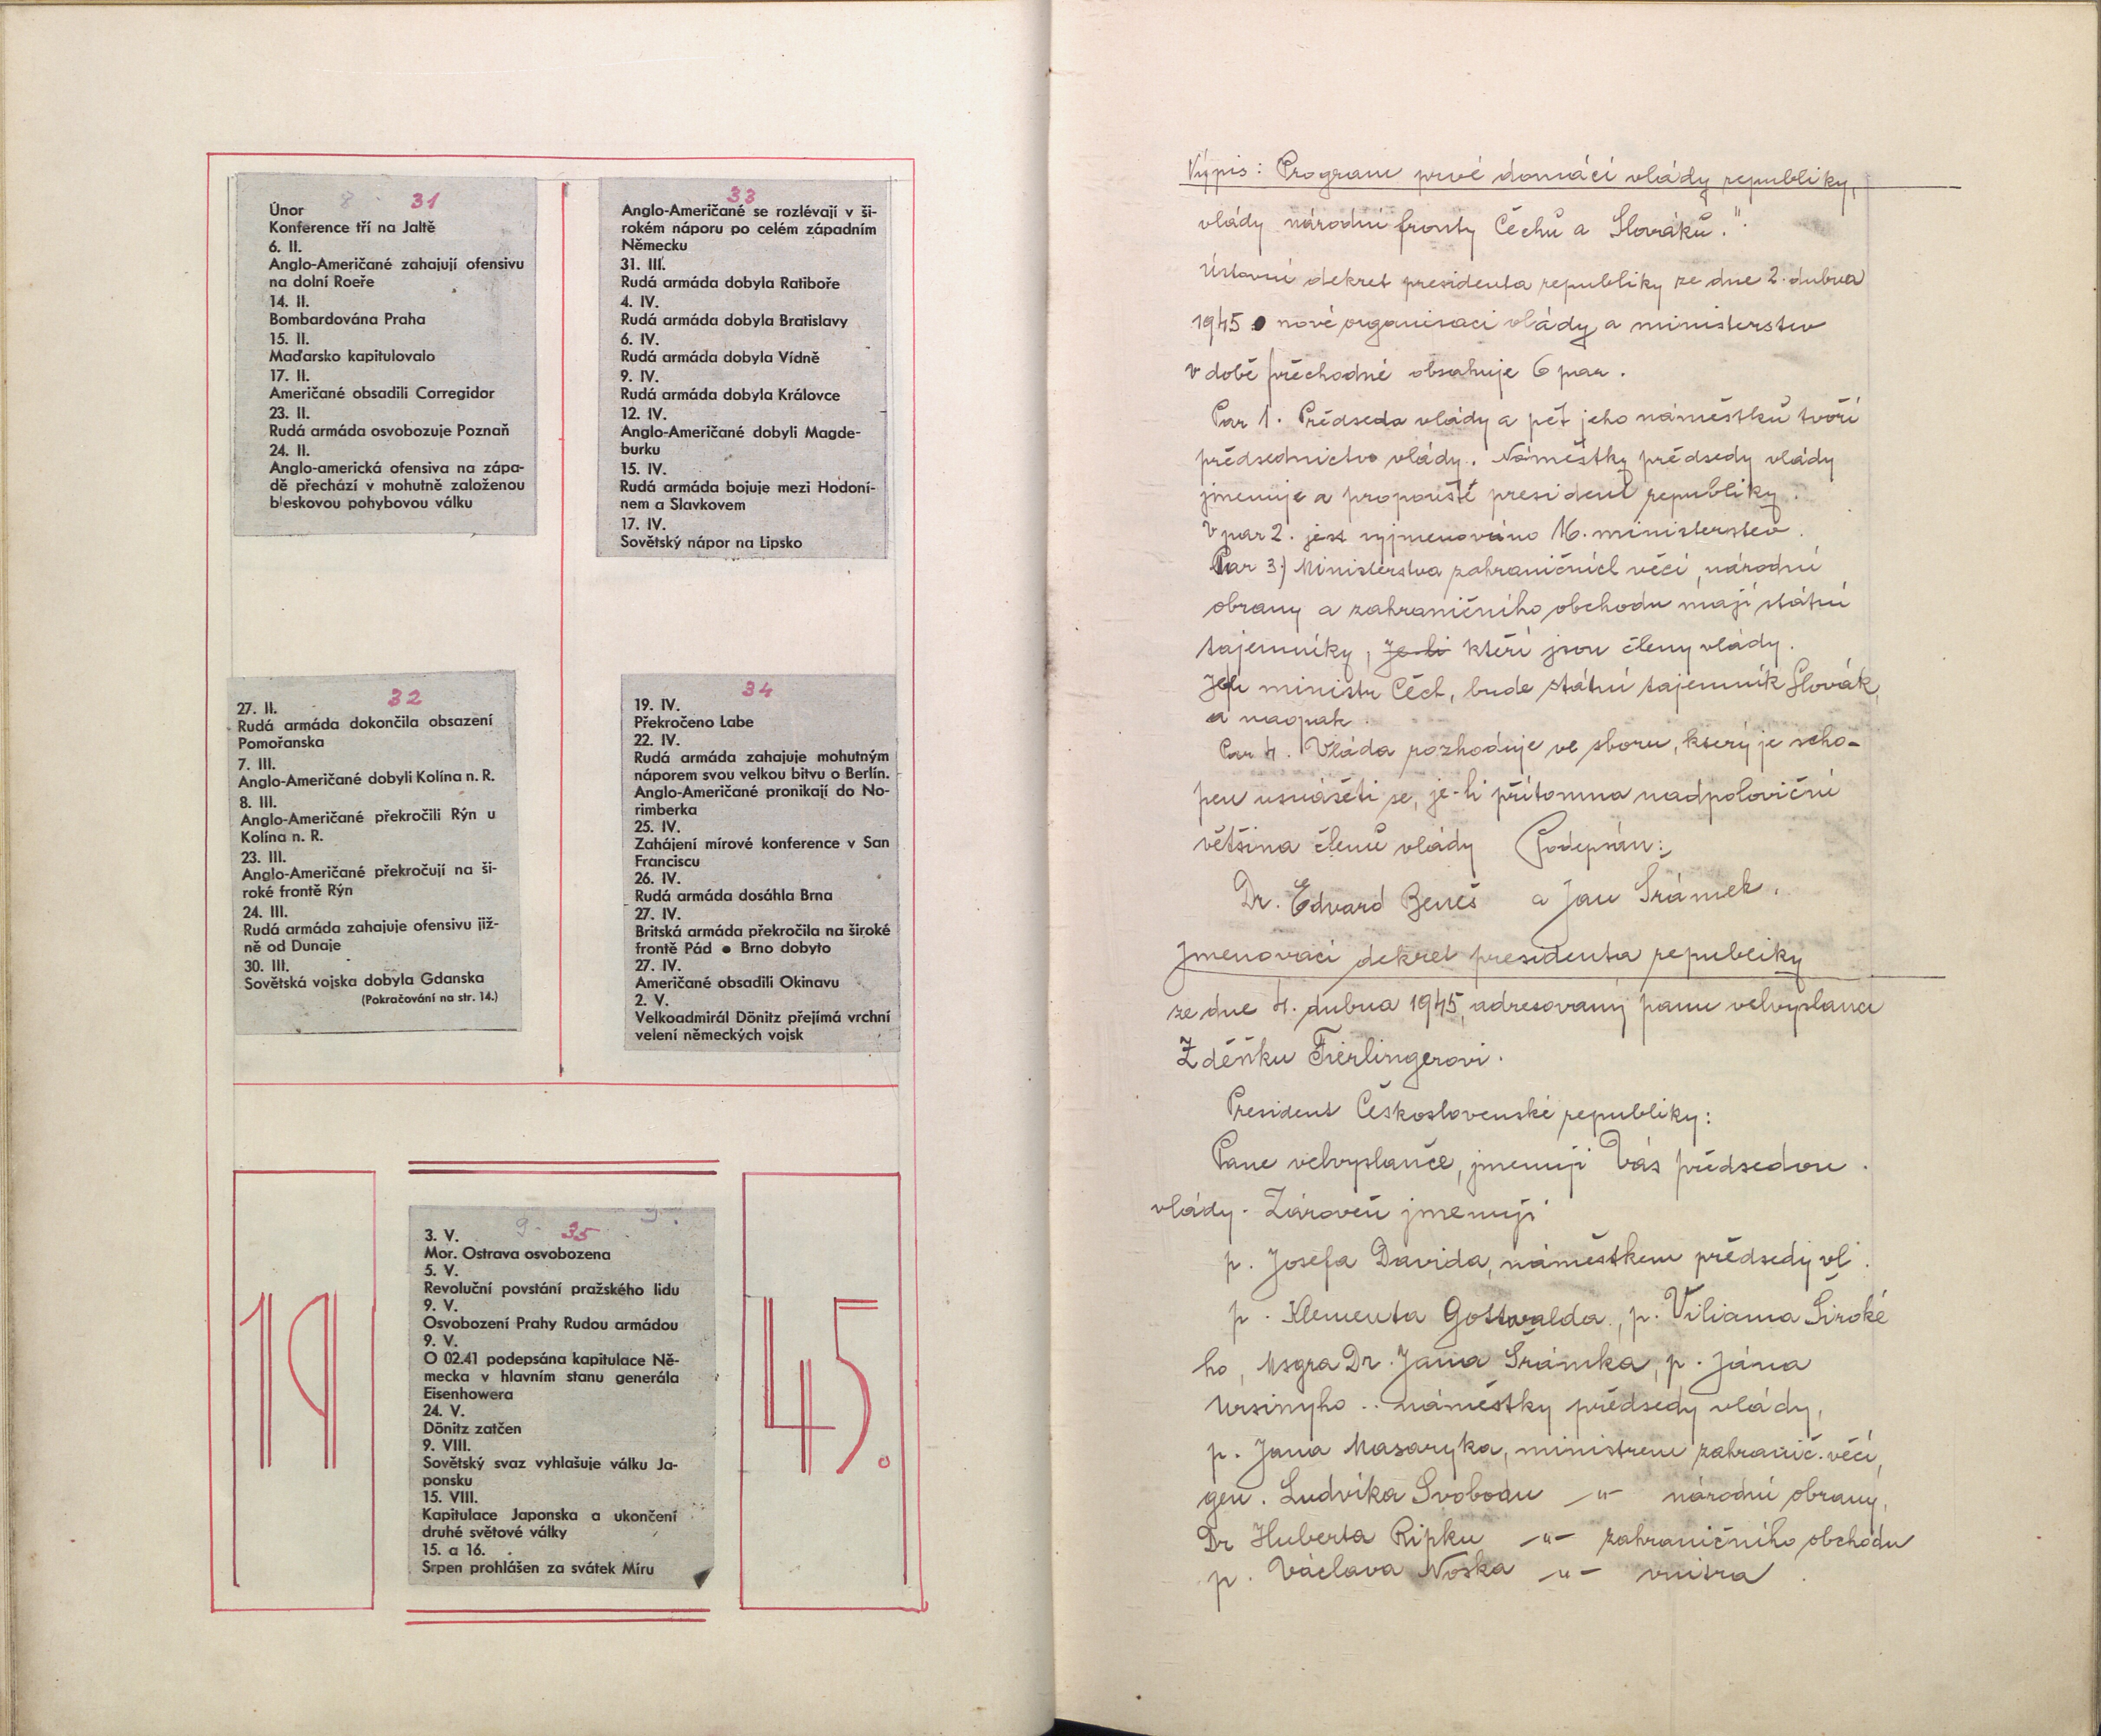 31
Únor
Konference tří na Jaltě
6. II.
Anglo-Američané zahajují ofensivu
na dolní Roeře
14. II.
Bombardována Praha
15. II.
Maďarsko kapitulovalo
17. II.
Američané obsadili Corregidor
23. II.
Rudá armáda osvobozuje Poznaň
24. II.
Anglo-americká ofensiva na zápa-
dě přechází v mohutně založenou
bleskovou pohybovou válku
32
27. II.
Rudá armáda dokončila obsazení
Pomořanska
7. III.
Anglo-Američané dobyli Kolína n. R.
8. III.
Anglo-Američané překročili Rýn u
Kolína n. R.
23. III.
Anglo-Američané překročují na ši-
roké frontě Rýn
24. III.
Rudá armáda zahajuje ofensivu již-
ně od Dunaje
30. III.
Sovětská vojska dobyla Gdanska
(Pokračování na str. 14.)
33
Anglo-Američané se rozlévají v ši-
rokém náporu po celém západním
Německu
31. III.
Rudá armáda dobyla Ratiboře
4. IV.
Rudá armáda dobyla Bratislavy
6. IV.
Rudá armáda dobyla Vídně
9. IV.
Rudá armáda dobyla Královce
12. IV.
Anglo-Američané dobyli Magde-
burku
15. IV.
Rudá armáda bojuje mezi Hodoní-
nem a Slavkovem
17. IV.
Sovětský nápor na Lipsko
34
19. IV.
Překročeno Labe
22. IV.
Rudá armáda zahajuje mohutným
náporem svou velkou bitvu o Berlín.
Anglo-Američané pronikají do No-
rimberka
25. IV.
Zahájení mírové konference v San
Franciscu
26. IV.
Rudá armáda dosáhla Brna
27. IV.
Britská armáda překročila na široké
frontě Pád ● Brno dobyto
27. IV.
Američané obsadili Okinavu
2. V.
Velkoadmirál Dönitz přejímá vrchní
velení německých vojsk
19
35
3. V.
Mor. Ostrava osvobozena
5. V.
Revoluční povstání pražského lidu
9. V.
Osvobození Prahy Rudou armádou
9. V.
O 02.41 podepsána kapitulace Ně-
mecka v hlavním stanu generála
Eisenhowera
24. V.
Dönitz zatčen
9. VIII.
Sovětský svaz vyhlašuje válku Ja-
ponsku
15. VIII.
Kapitulace Japonska a ukončení
druhé světové války
15. a 16.
Srpen prohlášen za svátek Míru
45.
Výpis: Program prvé domácí vlády republiky,
vlády národní fronty Čechů a Slováků."
Ústavní dekret presidenta republiky ze dne 2. dubna
1945 o nové organisaci vlády a ministerstev
v době přechodné obsahuje 6 par.
Par 1. Předseda vlády a pět jeho náměstků tvoří
předsednictvo vlády. Náměstky předsedy vlády
jmenuje a propouště president republiky.
V par 2. jest vyjmenováno 16. ministerstev.
Par 3.) Ministerstva zahraničních věcí, národní
obrany a zahraničního obchodu mají státní
tajemníky, Je-li kteří jsou členy vlády.
Jeli ministr Čech, bude státní tajemník Slovák,
a naopak.
Par 4. Vláda rozhoduje ve sboru, který je scho-
pen usnášeti se, je-li přítomna nadpoloviční
většina členů vlády Podepsán:
Dr. Edvard Beneš a Jan Šrámek.
Jmenovací dekret presidenta republiky
ze dne 4. dubna 1945, adresovaný panu velvyslanci
Zdeňku Fierlingerovi.
President Československé republiky:
Pane velvyslanče, jmenuji Vás předsedou
vlády. Zároveň jmenuji
p. Josefa Davida, náměstkem předsedy vl.
p. Klementa Gottwalda, p. Viliama Široké
ho, Msgra Dr. Jana Šrámka, p. Jána
Ursinyho .. náměstky předsedy vlády,
p. Jana Masaryka, ministrem zahranič. věcí,
gen. Ludvíka Svobodu -"- národní obrany,
Dr Huberta Ripku -"- zahraničního obchodu
p. Václava Noska -"- vnitra